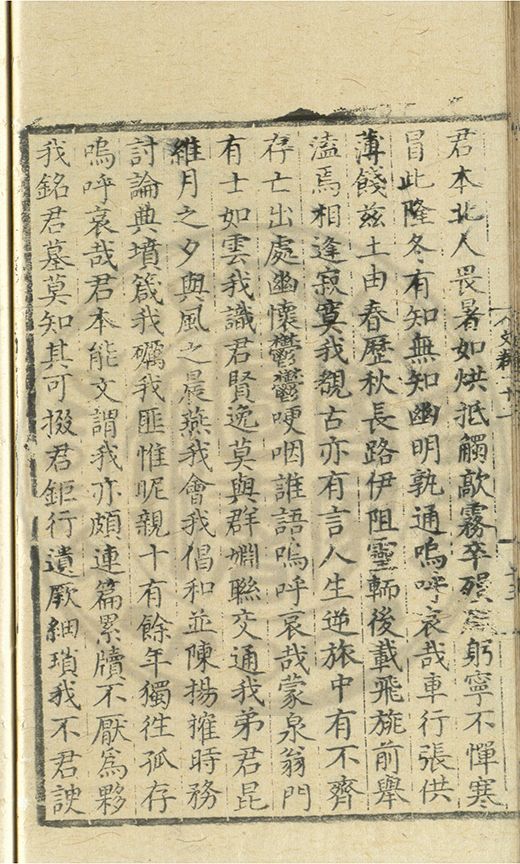 君本北人畏暑如烘抵觸歊霧卒殞躬寧不憚寒
冒此隆冬有知無知幽明孰通嗚呼哀哉車行張供
薄餞兹土由春歷秋長路伊阻靈輀後載飛旐前舉
溘焉相逢寂寞我覩古亦有言人生逆旅中有不齊
存亡出處幽懷鬱鬱哽咽誰語嗚呼哀哉蒙泉翁門
有士如雲我識君賢逸莫與群婣聯交通我弟君昆
維月之夕與風之晨燕我會我倡和並陳揚搉時務
討論典墳箴我礪我匪惟昵親十有餘年獨往孤存
嗚呼哀哉君本能文謂我亦頗連篇累牘不厭爲夥
我銘君墓莫知其可掇君鉅行遺厥細瑣我不君諛